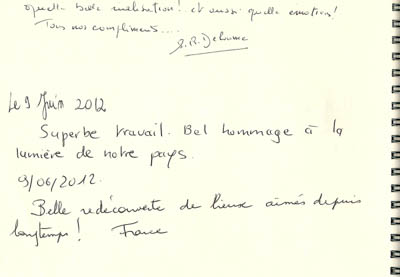 quelle belle réalisation! et aussi quelle émotion!
Tous nos compliments....
Le 9 Juin 2012
Superbe travail. Bel hommage à la
lumière de notre pays.
9/06/2012.
Belle redécouverte de lieux aimés depuis
longtemps! France